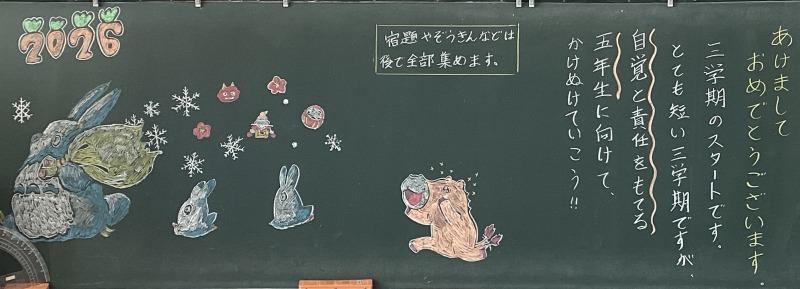 あけまして
おめでとうございます。
三学期のスタートです。
とても短い三学期ですが、
自覚と責任をもてる
五年生に向けて、
かけぬけていこう!!
宿題やぞうきんなどは
後で全部集めます。
2026